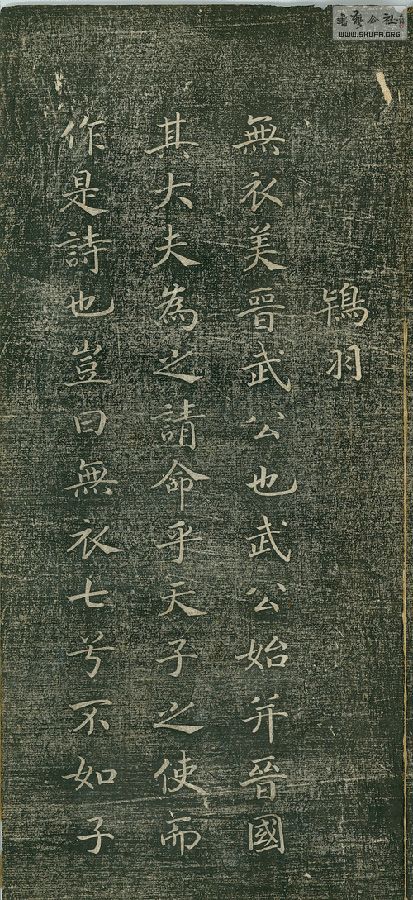 鴇羽
無衣美晉武公也武公始并晉國
其大夫為之請命乎天子之使而
作是詩也豈曰無衣七兮不如子
WWW.SHUFA.ORG